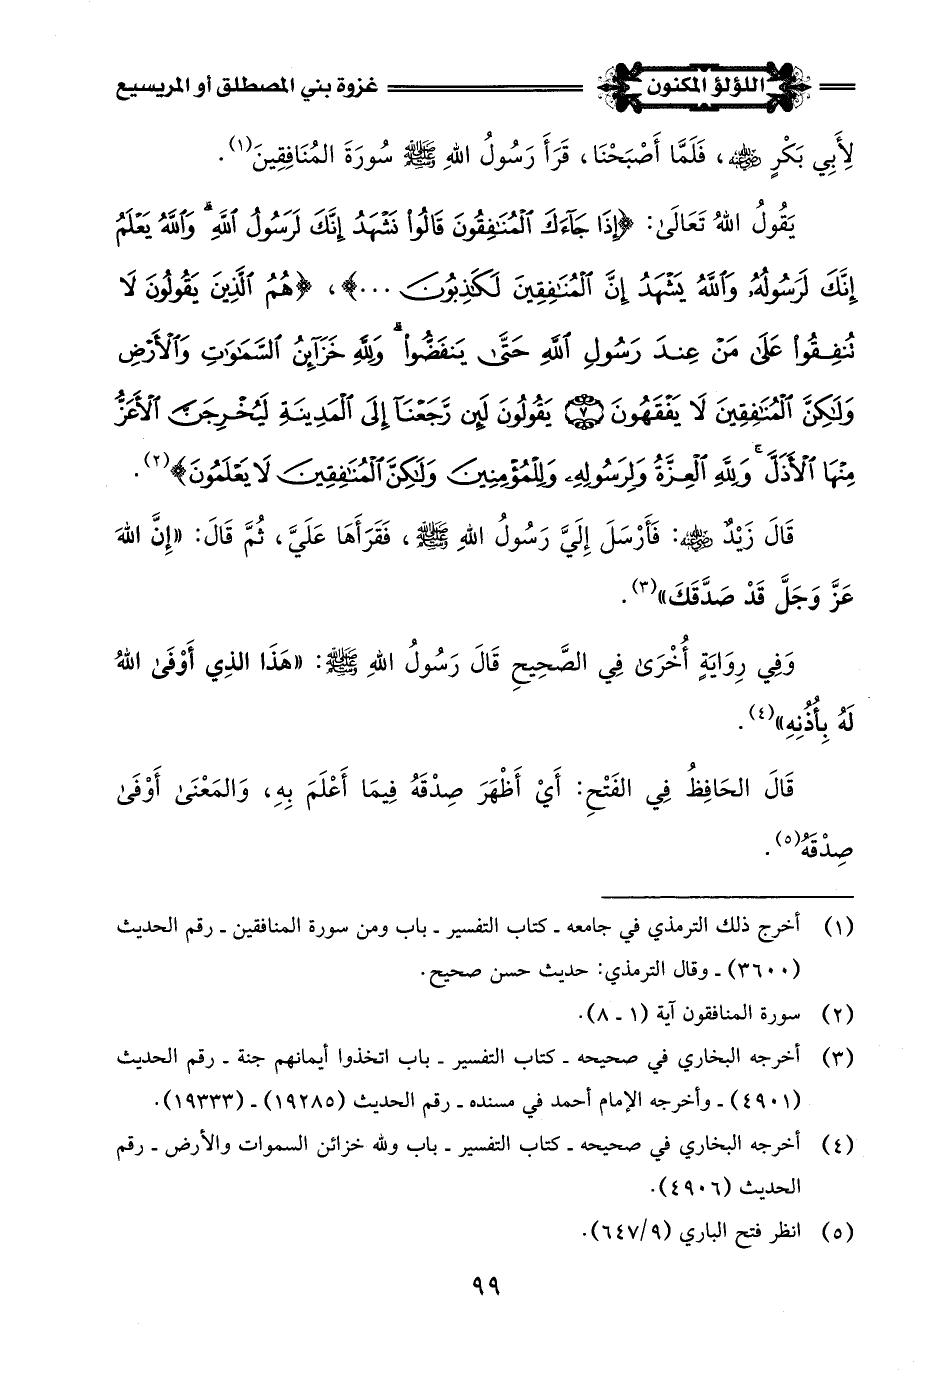 اللؤلؤ المكنون غزوة بني المصطلق أو المريسيع
لِأَبِي بَكْرٍ رضي الله عنه، فَلَمَّا أَصْبَحْنَا، قَرَأَ رَسُولُ اللهِ ﷺ سُورَةَ المُنَافِقِينَ(١).
يَقُولُ اللهُ تَعَالَىٰ: ﴿إِذَا جَآءَكَ ٱلْمُنَٰفِقُونَ قَالُوا۟ نَشْهَدُ إِنَّكَ لَرَسُولُ ٱللَّهِ ۗ وَٱللَّهُ يَعْلَمُ
إِنَّكَ لَرَسُولُهُۥ وَٱللَّهُ يَشْهَدُ إِنَّ ٱلْمُنَٰفِقِينَ لَكَٰذِبُونَ ...﴾، ﴿هُمُ ٱلَّذِينَ يَقُولُونَ لَا
تُنفِقُوا۟ عَلَىٰ مَنْ عِندَ رَسُولِ ٱللَّهِ حَتَّىٰ يَنفَضُّوا۟ ۗ وَلِلَّهِ خَزَآئِنُ ٱلسَّمَٰوَٰتِ وَٱلْأَرْضِ
وَلَٰكِنَّ ٱلْمُنَٰفِقِينَ لَا يَفْقَهُونَ ۝٧ يَقُولُونَ لَئِن رَّجَعْنَآ إِلَى ٱلْمَدِينَةِ لَيُخْرِجَنَّ ٱلْأَعَزُّ
مِنْهَا ٱلْأَذَلَّ ۚ وَلِلَّهِ ٱلْعِزَّةُ وَلِرَسُولِهِۦ وَلِلْمُؤْمِنِينَ وَلَٰكِنَّ ٱلْمُنَٰفِقِينَ لَا يَعْلَمُونَ﴾(٢).
قَالَ زَيْدٌ رضي الله عنه: فَأَرْسَلَ إِلَيَّ رَسُولُ اللهِ ﷺ، فَقَرَأَهَا عَلَيَّ، ثُمَّ قَالَ: «إِنَّ اللهَ
عَزَّ وَجَلَّ قَدْ صَدَّقَكَ»(٣).
وَفِي رِوَايَةٍ أُخْرَىٰ فِي الصَّحِيحِ قَالَ رَسُولُ اللهِ ﷺ: «هَذَا الذِي أَوْفَىٰ اللهُ
لَهُ بِأُذُنِهِ»(٤).
قَالَ الحَافِظُ فِي الفَتْحِ: أَيْ أَظْهَرَ صِدْقَهُ فِيمَا أَعْلَمَ بِهِ، وَالمَعْنَىٰ أَوْفَىٰ
صِدْقَهُ(٥).
(١) أخرج ذلك الترمذي في جامعه ـ كتاب التفسير ـ باب ومن سورة المنافقين ـ رقم الحديث
(٣٦٠٠) ـ وقال الترمذي: حديث حسن صحيح.
(٢) سورة المنافقون آية (١ ـ ٨).
(٣) أخرجه البخاري في صحيحه ـ كتاب التفسير ـ باب اتخذوا أيمانهم جنة ـ رقم الحديث
(٤٩٠١) ـ وأخرجه الإمام أحمد في مسنده ـ رقم الحديث (١٩٢٨٥) ـ (١٩٣٣٣).
(٤) أخرجه البخاري في صحيحه ـ كتاب التفسير ـ باب ولله خزائن السموات والأرض ـ رقم
الحديث (٤٩٠٦).
(٥) انظر فتح الباري (٦٤٧/٩).
٩٩